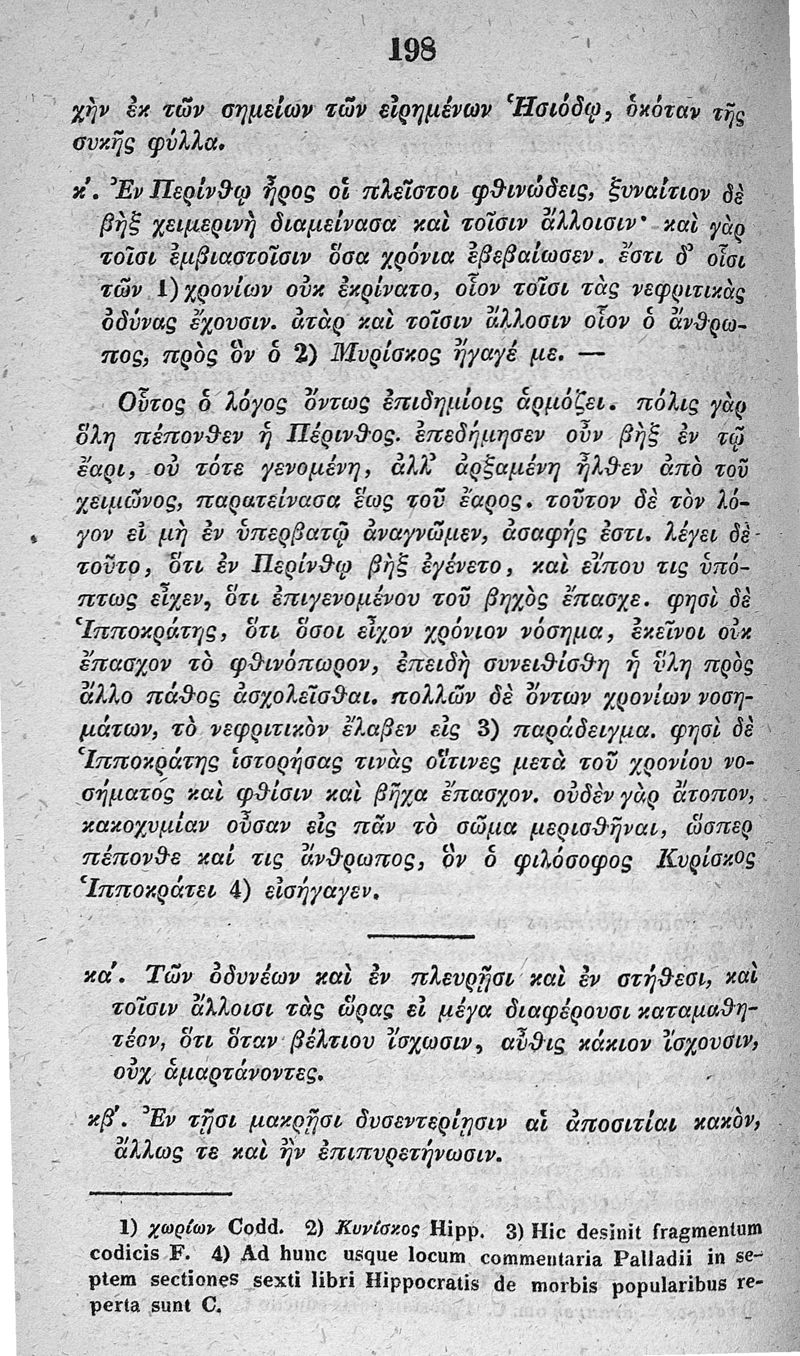 198
χὴν ἐκ τῶν σημείων τῶν εἰρημένων Ἡσιόδῳ, ὁκόταν τῆς
συκῆς φύλλα.
κ΄. Ἐν Περίνθῳ ἦρος οἱ πλεῖστοι φθινώδεις, ξυναίτιον δὲ
βὴξ χειμερινὴ διαμείνασα καὶ τοῖσιν ἄλλοισιν· καὶ γὰρ
τοῖσι ἐμβιαστοῖσιν ὅσα χρόνια ἐβεβαίωσεν. ἔστι δ᾽ οἷσι
τῶν 1) χρονίων οὐκ ἐκρίνατο, οἷον τοῖσι τὰς νεφριτικὰς
ὀδύνας ἔχουσιν. ἀτὰρ καὶ τοῖσιν ἄλλοσιν οἷον ὁ ἄνθρω-
πος, πρὸς ὃν ὁ 2) Μυρίσκος ἤγαγέ με. —
Οὗτος ὁ λόγος ὄντως ἐπιδημίοις ἁρμόζει. πόλις γὰρ
ὅλη πέπονθεν ἡ Πέρινθος. ἐπεδήμησεν οὖν βὴξ ἐν τῷ
ἔαρι, οὐ τότε γενομένη, ἀλλ᾽ ἀρξαμένη ἦλθεν ἀπὸ τοῦ
χειμῶνος, παρατείνασα ἕως τοῦ ἔαρος. τοῦτον δὲ τὸν λό-
γον εἰ μὴ ἐν ὑπερβατῷ ἀναγνῶμεν, ἀσαφής ἐστι. λέγει δὲ
τοῦτο, ὅτι ἐν Περίνθῳ βὴξ ἐγένετο, καὶ εἴπου τις ὑπό-
πτως εἶχεν, ὅτι ἐπιγενομένου τοῦ βηχὸς ἔπασχε. φησὶ δὲ
Ἱπποκράτης, ὅτι ὅσοι εἶχον χρόνιον νόσημα, ἐκεῖνοι οὐκ
ἔπασχον τὸ φθινόπωρον, ἐπειδὴ συνειθίσθη ἡ ὕλη πρὸς
ἄλλο πάθος ἀσχολεῖσθαι. πολλῶν δὲ ὄντων χρονίων νοση-
μάτων, τὸ νεφριτικὸν ἔλαβεν εἰς 3) παράδειγμα. φησὶ δὲ
Ἱπποκράτης ἱστορήσας τινὰς οἵτινες μετὰ τοῦ χρονίου νο-
σήματος καὶ φθίσιν καὶ βῆχα ἔπασχον. οὐδὲν γὰρ ἄτοπον,
κακοχυμίαν οὖσαν εἰς πᾶν τὸ σῶμα μερισθῆναι, ὥσπερ
πέπονθε καί τις ἄνθρωπος, ὃν ὁ φιλόσοφος Κυρίσκος
Ἱπποκράτει 4) εἰσήγαγεν.
κα΄. Τῶν ὀδυνέων καὶ ἐν πλευρῇσι καὶ ἐν στήθεσι, καὶ
τοῖσιν ἄλλοισι τὰς ὥρας εἰ μέγα διαφέρουσι καταμαθη-
τέον, ὅτι ὅταν βέλτιου ἴσχωσιν, αὖθις κάκιον ἴσχουσιν,
οὐχ ἁμαρτάνοντες.
κβ΄. Ἐν τῇσι μακρῇσι δυσεντερίῃσιν αἱ ἀποσιτίαι κακὸν,
ἄλλως τε καὶ ἢν ἐπιπυρετήνωσιν.
1) χωρίων Codd. 2) Κυνίσκος Hipp. 3) Hic desinit fragmentum
codicis F. 4) Ad hunc usque locum commentaria Palladii in se-
ptem sectiones sexti libri Hippocratis de morbis popularibus re-
perta sunt C.